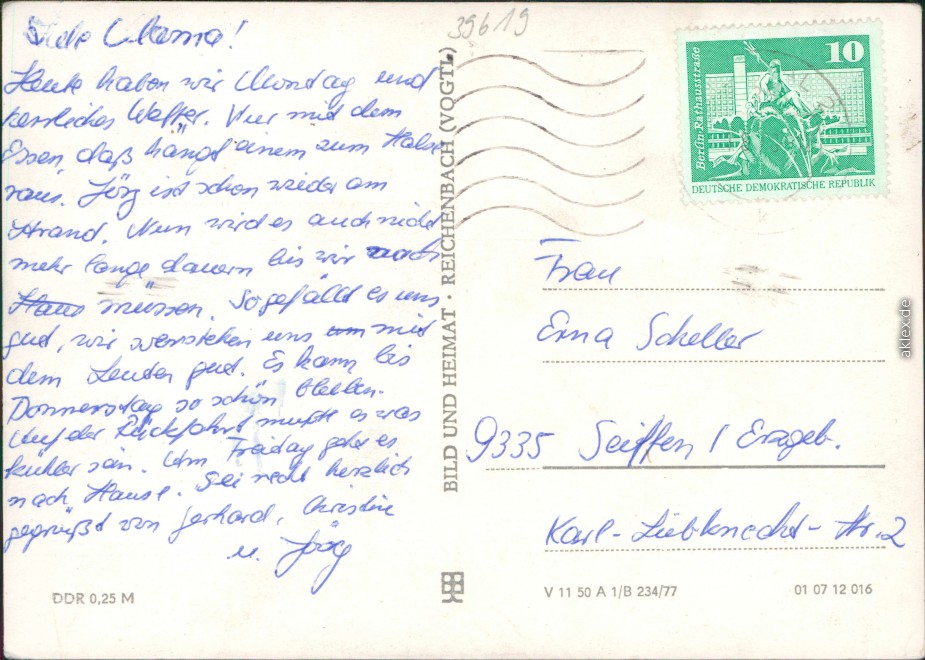 Liebe Mama!
Heute haben wir Montag und
herrliches Wetter. Nur mit dem
Essen, daß hängt einem zum Halse
raus. Jörg ist schon wieder am
Strand. Nun wird es auch nicht
mehr lange dauern bis wir nach
Haus müssen. So gefällt es uns
gut, wir verstehen uns mit
dem Leuten gut. Es kann bis
Donnerstag so schön bleiben.
Auf der Rückfahrt mußt es was
kühler sein. Am Freitag geht es
nach Hause. Sei recht herzlich
gegrüßt von Gerhard, Christine
u. Jörg
DDR 0,25 M
39619
BILD UND HEIMAT · REICHENBACH (VOGTL)
10
Berlin-Rathausstraße
DEUTSCHE DEMOKRATISCHE REPUBLIK
Frau
Erna Scheller
9335 Seiffen / Erzgeb.
Karl-Liebknecht-Str. 2
V 11 50 A 1/B 234/77
01 07 12 016
aklex.de